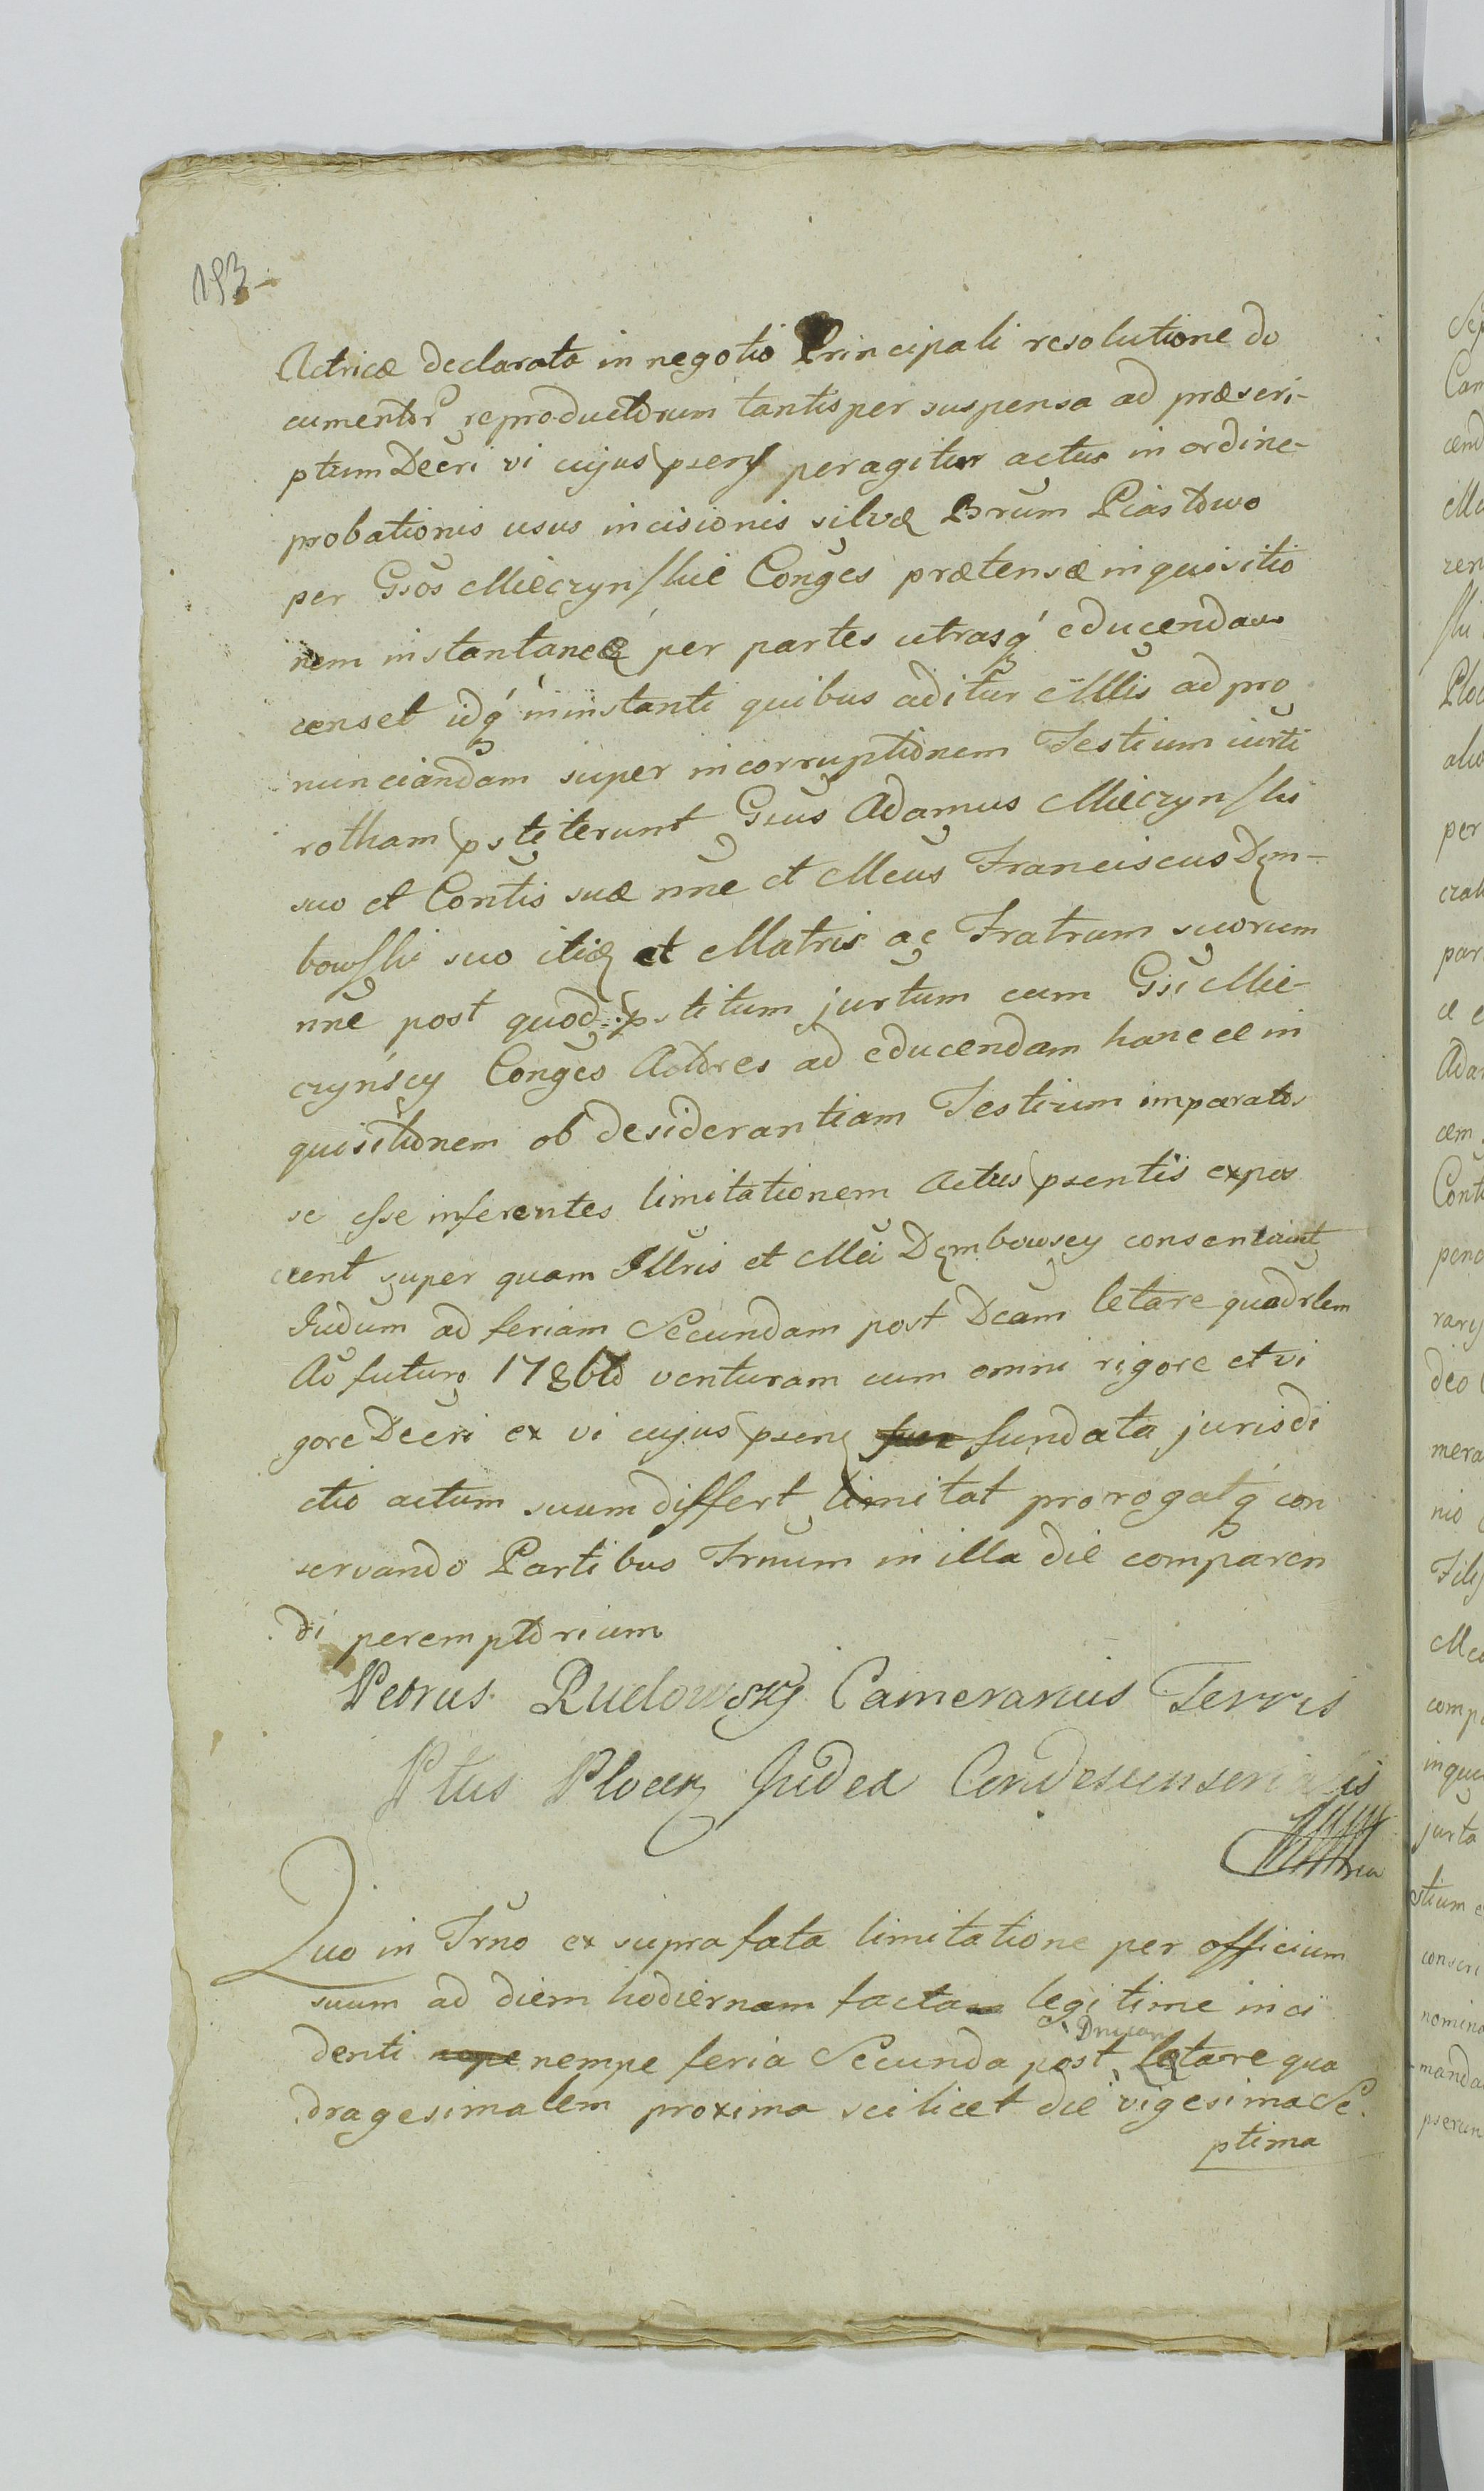 193
Actricæ declarata in negotio Principali resolutione do
cumentor reproductorum tantisper suspensa ad præscri-
ptum Decri vi cujus psens peragitur actus in ordine
probationis usus incisionis silvæ Brum Piastowo
per Gsos Mieczynskie Conges prætensæ inquisitio
nem instantaneæ per partes utrasq educendam
censet idq in instanti quibus aditur Mllis ad pro
nunciandam super incorruptionem Testium jurti
rotham pstiterunt Gsus Adamus Mieczynski
suo et Contis suæ nne et Mcus Franciscus Dęm-
bowski suo itiq et Matris ac Fratrum suorum
nne post quod pstitum jurtum cum Gsi Mie-
czyńscy Conges Actores ad educendam hancce in
quisitionem ob desiderantiam Testium imparatos
se esse inferentes limitationem Actus psentis expos
cent super quam Illris et Mci Dęmbowscy consentiunt
Judum ad feriam Secundam post Dcam letare quadrlem
Ao futuro 1786to venturam cum omni rigore et vi
gore Decri ex vi cujus psens fundata jurisdi
ctio actum suum differt limitat prorogatq con
servando Partibus Trnum in illa die comparen
di peremptorium
Petrus Rudowsky Camerarius Terris
Ptus Plocen Judex Condescensorialis
Quo in Trno ex suprafata limitatione per officium
suum ad diem hodiernam facta legitime inci
denti nempe feria Secunda post Dnicam letare qua
dragesimalem proxima scilicet die vigesima Se
ptima